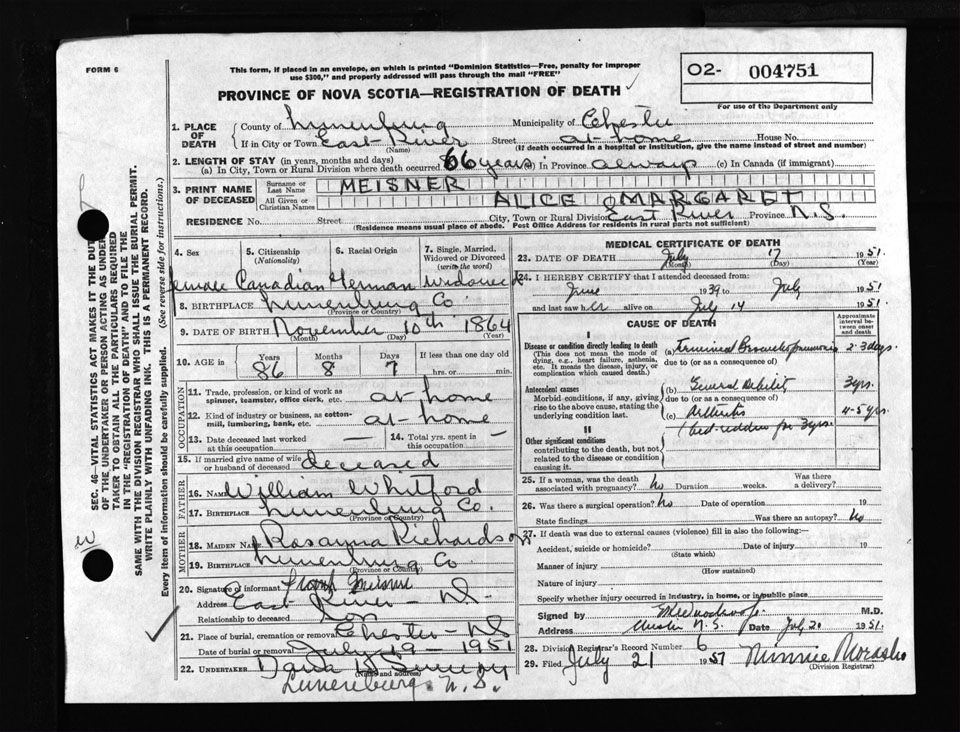 FORM 6
This form, if placed in an envelope, on which is printed "Dominion Statistics—Free, penalty for improper
use $300," and properly addressed will pass through the mail "FREE"
PROVINCE OF NOVA SCOTIA—REGISTRATION OF DEATH
O2- 004751
For use of the Department only
SEC. 46—VITAL STATISTICS ACT MAKES IT THE DUTY
OF THE UNDERTAKER OR PERSON ACTING AS UNDER
TAKER TO OBTAIN ALL THE PARTICULARS REQUIRED
IN THE "REGISTRATION OF DEATH" AND TO FILE THE
SAME WITH THE DIVISION REGISTRAR WHO SHALL ISSUE THE BURIAL PERMIT.
WRITE PLAINLY WITH UNFADING INK. THIS IS A PERMANENT RECORD.
Every item of information should be carefully supplied. (See reverse side for instructions.)
1. PLACE OF DEATH County of Lunenburg Municipality of Chester
If in City or Town East River Street at home House No.
(Name) (If death occurred in a hospital or institution, give the name instead of street and number)
2. LENGTH OF STAY (in years, months and days)
(a) In City, Town or Rural Division where death occurred 86 years (b) In Province always (c) In Canada (if immigrant)
3. PRINT NAME OF DECEASED Surname or Last Name MEISNER
All Given or Christian Names ALICE MARGARET
RESIDENCE No. Street City, Town or Rural Division East River Province N.S.
(Residence means usual place of abode. Post Office Address for residents in rural parts not sufficient)
4. Sex 5. Citizenship (Nationality) 6. Racial Origin 7. Single, Married, Widowed or Divorced (write the word)
Female Canadian German Widowed
8. BIRTHPLACE Lunenburg Co.
(Province or Country)
9. DATE OF BIRTH November 10th 1864
(Month) (Day) (Year)
10. AGE in Years Months Days If less than one day old
86 8 7 hrs. or min.
OCCUPATION
11. Trade, profession, or kind of work as spinner, teamster, office clerk, etc. at home
12. Kind of industry or business, as cotton-mill, lumbering, bank, etc. at home
13. Date deceased last worked at this occupation — 14. Total yrs. spent in this occupation —
15. If married give name of wife or husband of deceased deceased
FATHER
16. Name William Whitford
17. BIRTHPLACE Lunenburg Co.
(Province or Country)
MOTHER
18. MAIDEN NAME Rosanna Richardson
19. BIRTHPLACE Lunenburg Co
(Province or Country)
20. Signature of informant Frank Meisner
Address East River — N.S.
Relationship to deceased Son
21. Place of burial, cremation or removal Chester - NS
Date of burial or removal July 19 - 1951
22. UNDERTAKER
(Name and address)
Lunenburg N.S.
MEDICAL CERTIFICATE OF DEATH
23. DATE OF DEATH July 17 1951
(Month) (Day) (Year)
24. I HEREBY CERTIFY that I attended deceased from:
June 1939 to July 1951
and last saw her alive on July 14 1951
CAUSE OF DEATH
Approximate interval between onset and death
I
Disease or condition directly leading to death (a) Terminal Bronchopneumonia 2-3 days.
(This does not mean the mode of dying, e.g., heart failure, asthenia, etc. It means the disease, injury, or complication which caused death.)
due to (or as a consequence of)
Antecedent causes (b) General Debility 3 yrs.
Morbid conditions, if any, giving rise to the above cause, stating the underlying condition last.
due to (or as a consequence of)
(c) Arthritis 4-5 yrs.
(bed-ridden for 3 yrs.
II
Other significant conditions
contributing to the death, but not related to the disease or condition causing it.
25. If a woman, was the death associated with pregnancy? no Duration weeks. Was there a delivery?
26. Was there a surgical operation? no Date of operation 19
State findings Was there an autopsy? No
27. If death was due to external causes (violence) fill in also the following:—
Accident, suicide or homicide? Date of injury 19
(State which)
Manner of injury
(How sustained)
Nature of injury
Specify whether injury occurred in industry, in home, or in public place
Signed by M.D.
Address Chester N.S. Date July 20 1951.
28. Division Registrar's Record Number 6
29. Filed July 21 1951 Minnie
(Division Registrar)